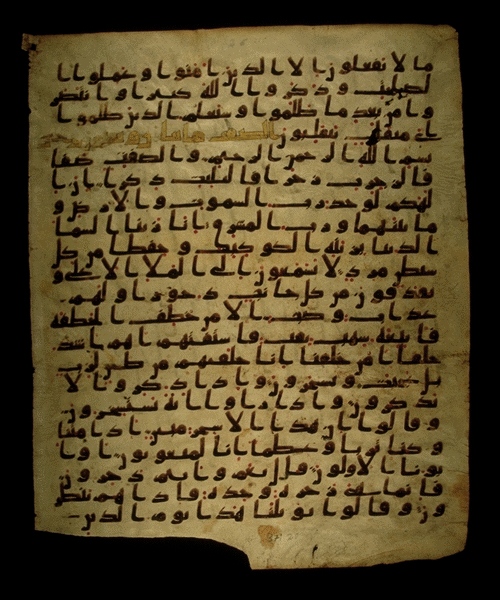 ما لا يفعلون الا الذين امنوا وعملوا ا
لصلحت وذكروا الله كثيرا وانتصر
وا من بعد ما ظلموا وسيعلم الذين ظلموا
اى منقلب ينقلبون والصفت
بسم الله الرحمن الرحيم والصفت صفا
فالزجرت زجرا فالتليت ذكرا ان ا
لهكم لوحد رب السموت والارض و
ما بينهما ورب المشرق انا زينا السما
الدنيا بزينه الكوكب وحفظا من كل
شيطن مرد لا يسمعون الى الملا الاعلى و
يقذفون من كل جانب دحورا ولهم
عذاب واصب الا من خطف الخطفه
فاتبعه شهب ثقب فاستفتهم اهم اشد
خلقا ام من خلقنا انا خلقنهم من طين لزب
بل عجبت ويسخرون واذا ذكروا لا
يذكرون واذا راوا ايه يستسخرون
وقالوا ان هذا الا سحر مبين اذا متنا
وكنا ترابا وعظما انا لمبعوثون او ا
باونا الاولون قل نعم وانتم دخرون
فانما هى زجره وحده فاذا هم ينظر
ون وقالوا يويلنا هذا يوم الدين